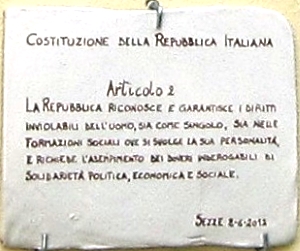 COSTITUZIONE DELLA REPUBBLICA ITALIANA
Articolo 2
LA REPUBBLICA RICONOSCE E GARANTISCE I DIRITTI
INVIOLABILI DELL'UOMO, SIA COME SINGOLO, SIA NELLE
FORMAZIONI SOCIALI OVE SI SVOLGE LA SUA PERSONALITÀ,
E RICHIEDE L'ADEMPIMENTO DEI DOVERI INDEROGABILI DI
SOLIDARIETÀ POLITICA, ECONOMICA E SOCIALE.
SEZZE 2-6-2012